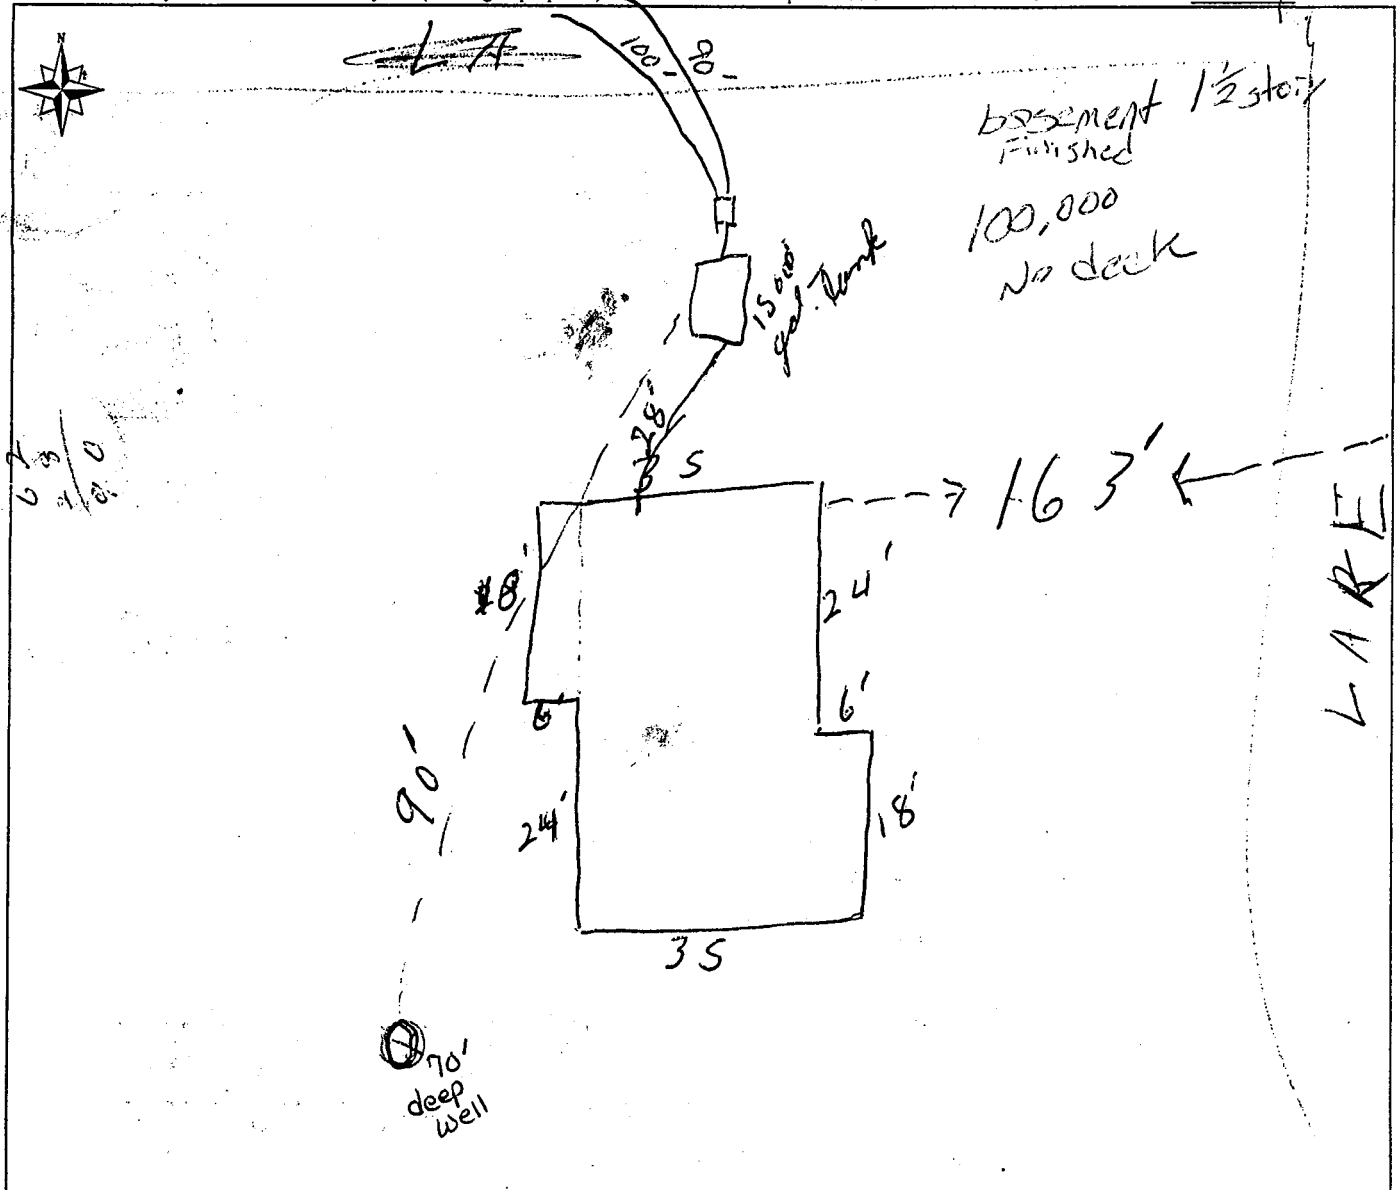 N
LA
100 -
90 -
basement 1½ story
Finished
100,000
No deck
gal. Tank
28'
S
163'
LAKE
18'
24'
6'
6'
90'
24'
18'
35
70'
deep
well